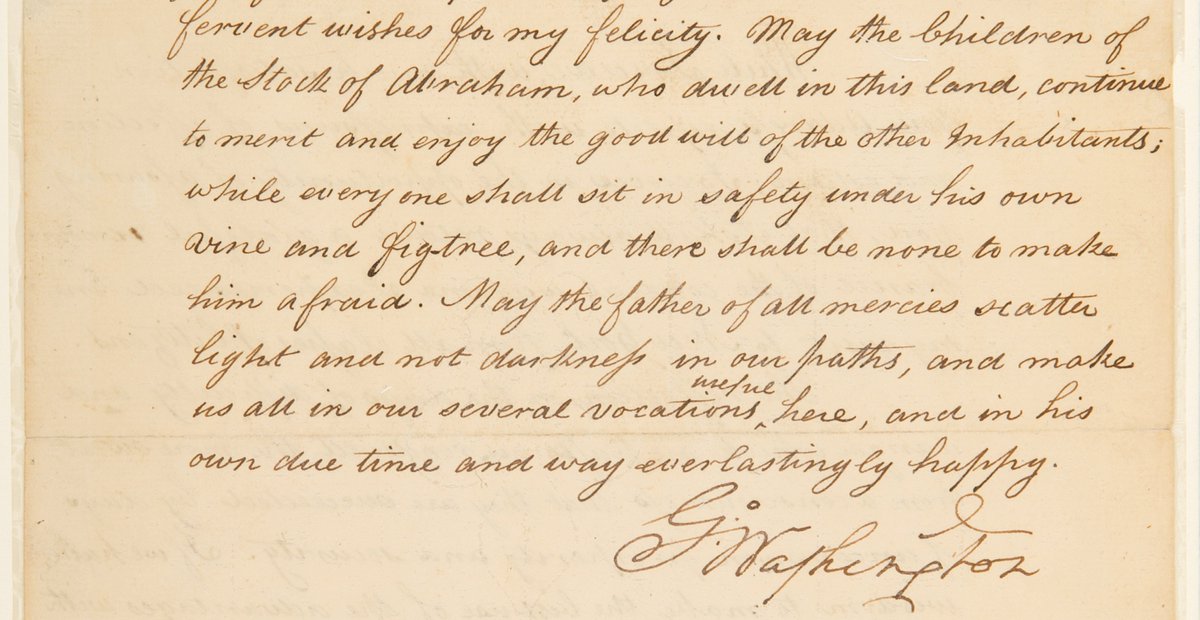 fervent wishes for my felicity. May the Children of
the Stock of Abraham, who dwell in this land, continue
to merit and enjoy the good will of the other Inhabitants;
while every one shall sit in safety under his own
vine and figtree, and there shall be none to make
him afraid. May the father of all mercies scatter
light and not darkneſs in our paths, and make
useful
us all in our several vocations ‸ here, and in his
own due time and way everlastingly happy.
G. Washington